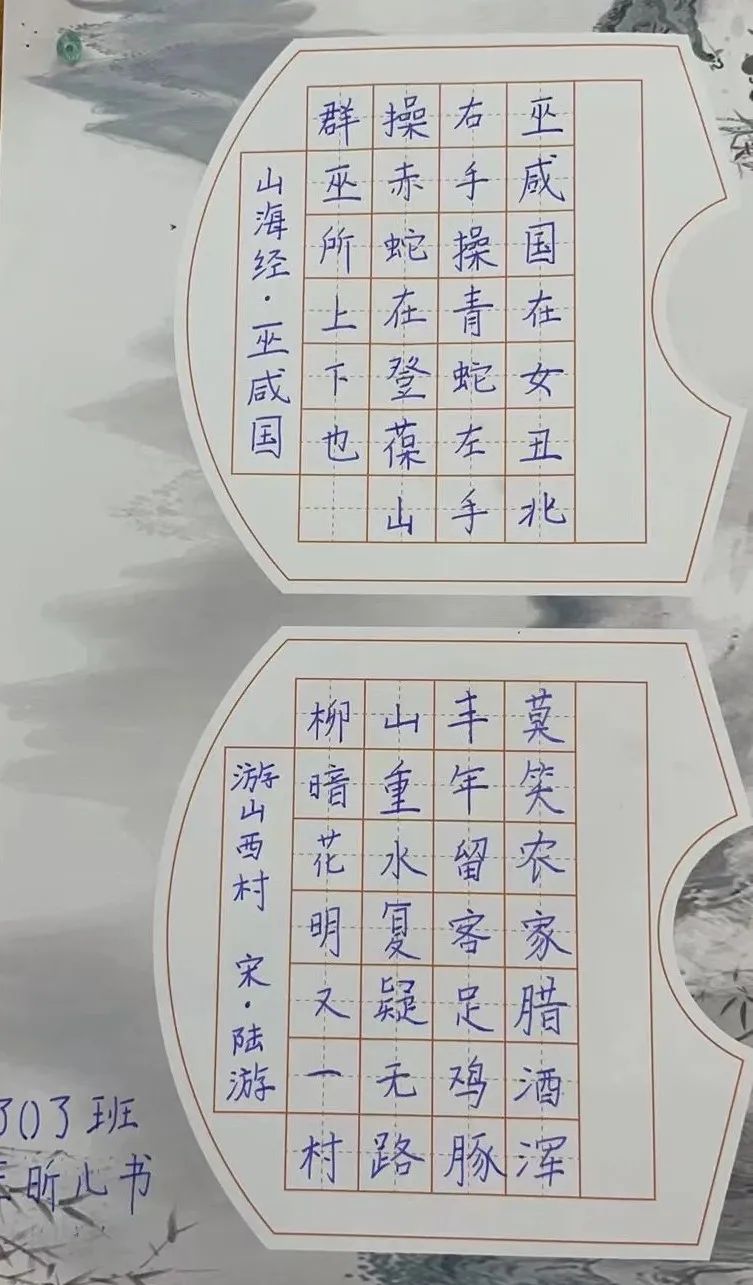 巫咸国在女丑北
右手操青蛇左手
操赤蛇在登葆山
群巫所上下也
山海经·巫咸国
莫笑农家腊酒浑
丰年留客足鸡豚
山重水复疑无路
柳暗花明又一村
游山西村 宋·陆游
303班
昕儿书